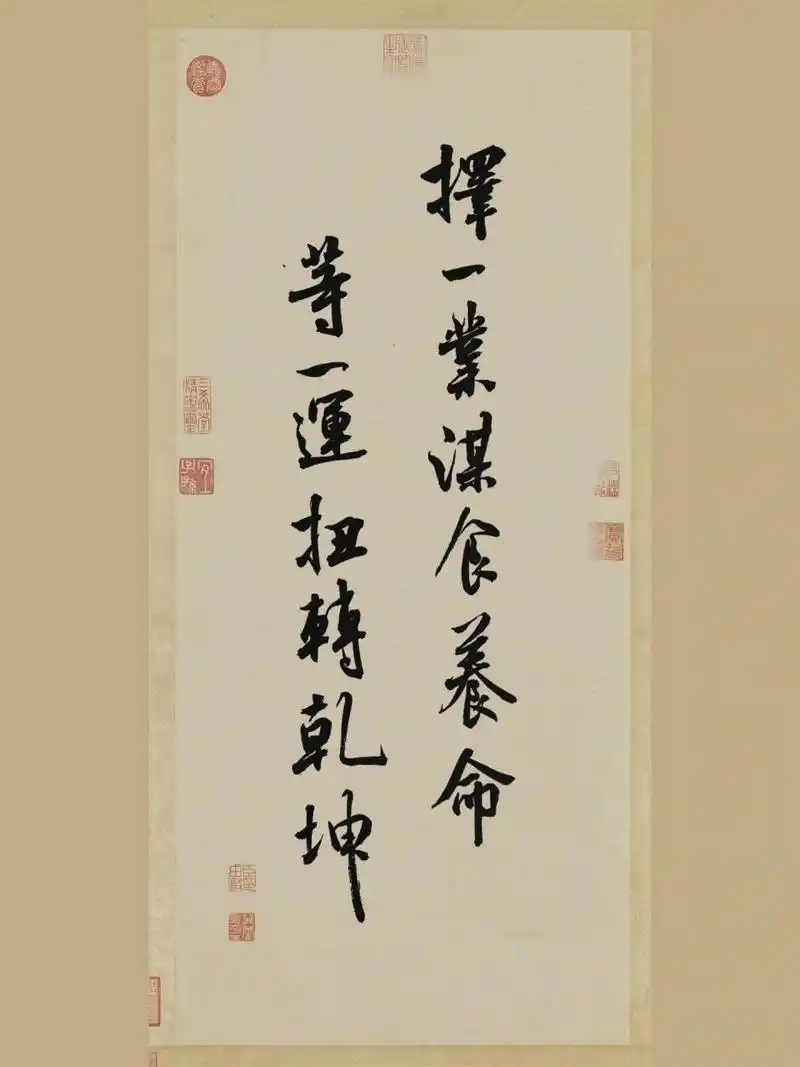 擇一業謀食養命
等一運扭轉乾坤